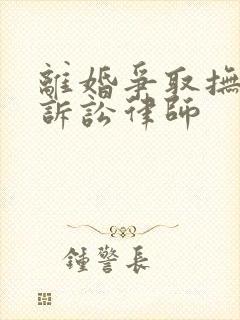 離婚爭取撫
訴訟律師
鍾警長